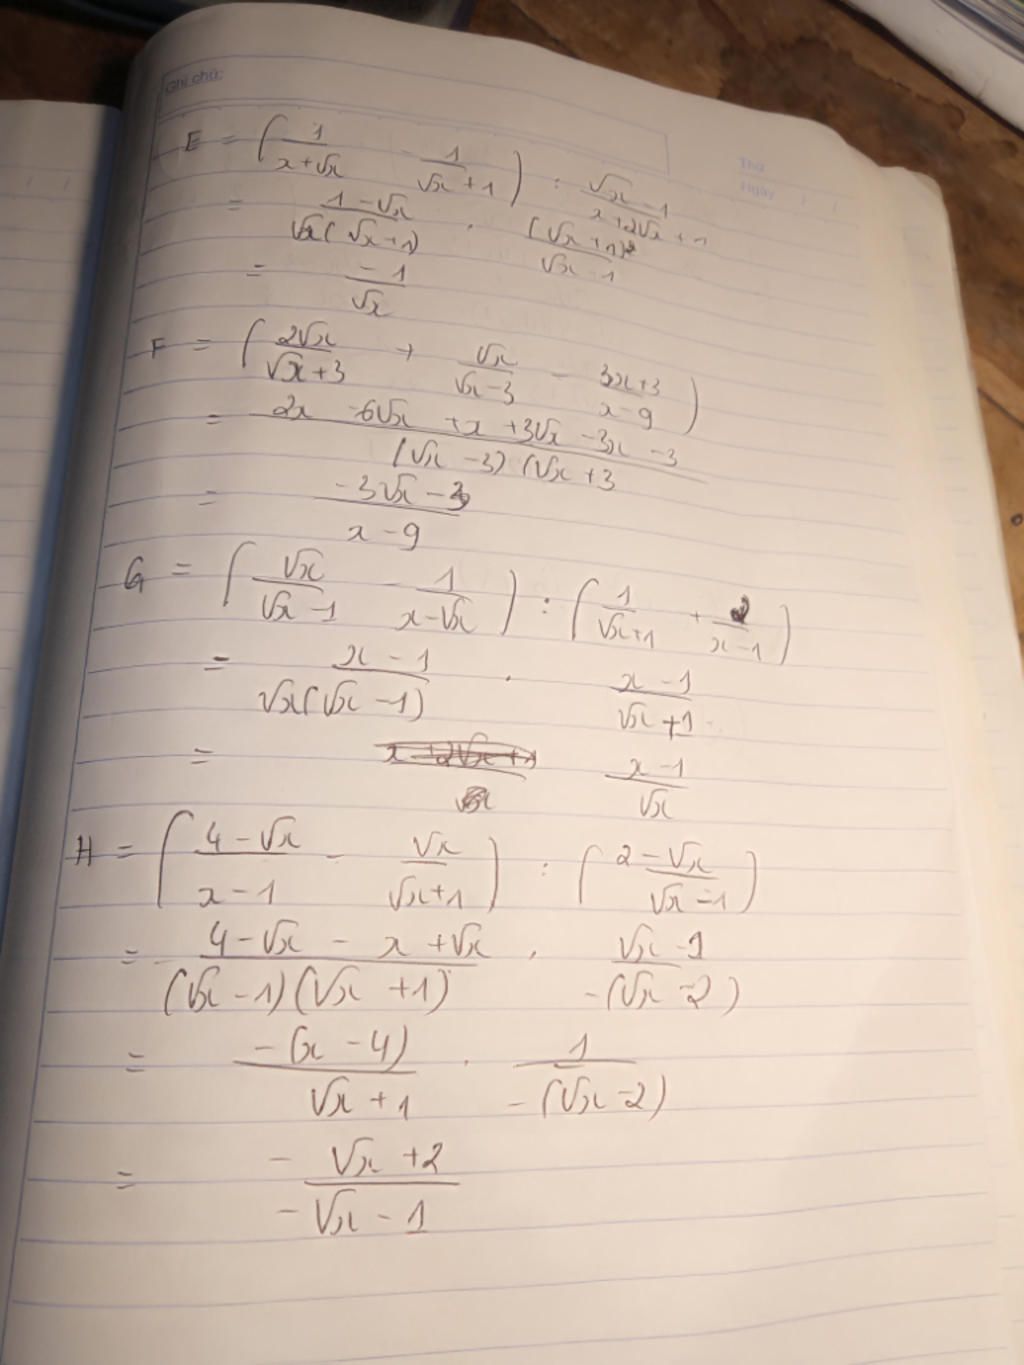 Ghi chú:
Thứ
Ngày
E = (1/(x+√x) - 1/(√x+1)) : (√x-1)/(x+2√x+1)
= (1-√x)/(√x(√x+1)) . (√x+1)²/(√x-1)
= -1/√x
F = (2√x/(√x+3) + √x/(√x-3) - (3x+3)/(x-9))
= (2x -6√x +x +3√x -3x -3)/((√x-3)(√x+3
= (-3√x-3)/(x-9)
G = (√x/(√x-1) - 1/(x-√x)) : (1/(√x+1) + 2/(x-1))
= (x-1)/(√x(√x-1)) . (x-1)/(√x+1)
= (x-1)/√x
H = ((4-√x)/(x-1) - √x/(√x+1)) : ((2-√x)/(√x-1))
= (4-√x - x+√x)/((√x-1)(√x+1)) . (√x-1)/(-(√x-2))
= (-(x-4))/(√x+1) . 1/(-(√x-2))
= (- √x+2)/(-√x-1)